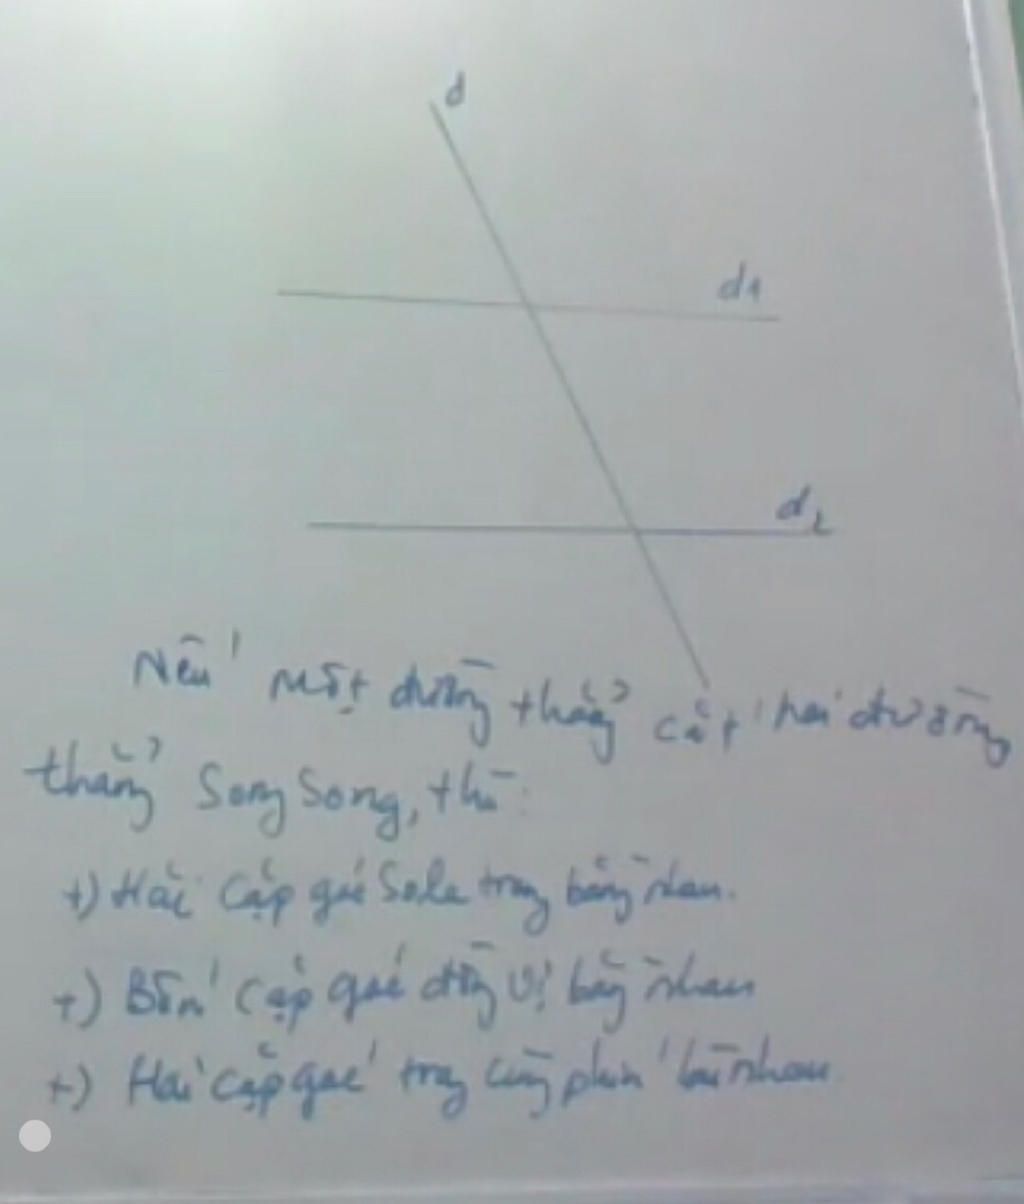 d
d1
d2
Nếu một đường thẳng cắt hai đường
thẳng song song, thì:
+) Hai cặp góc Sole trong bằng nhau.
+) Bốn cặp góc đồng vị bằng nhau
+) Hai cặp góc trong cùng phía nhau